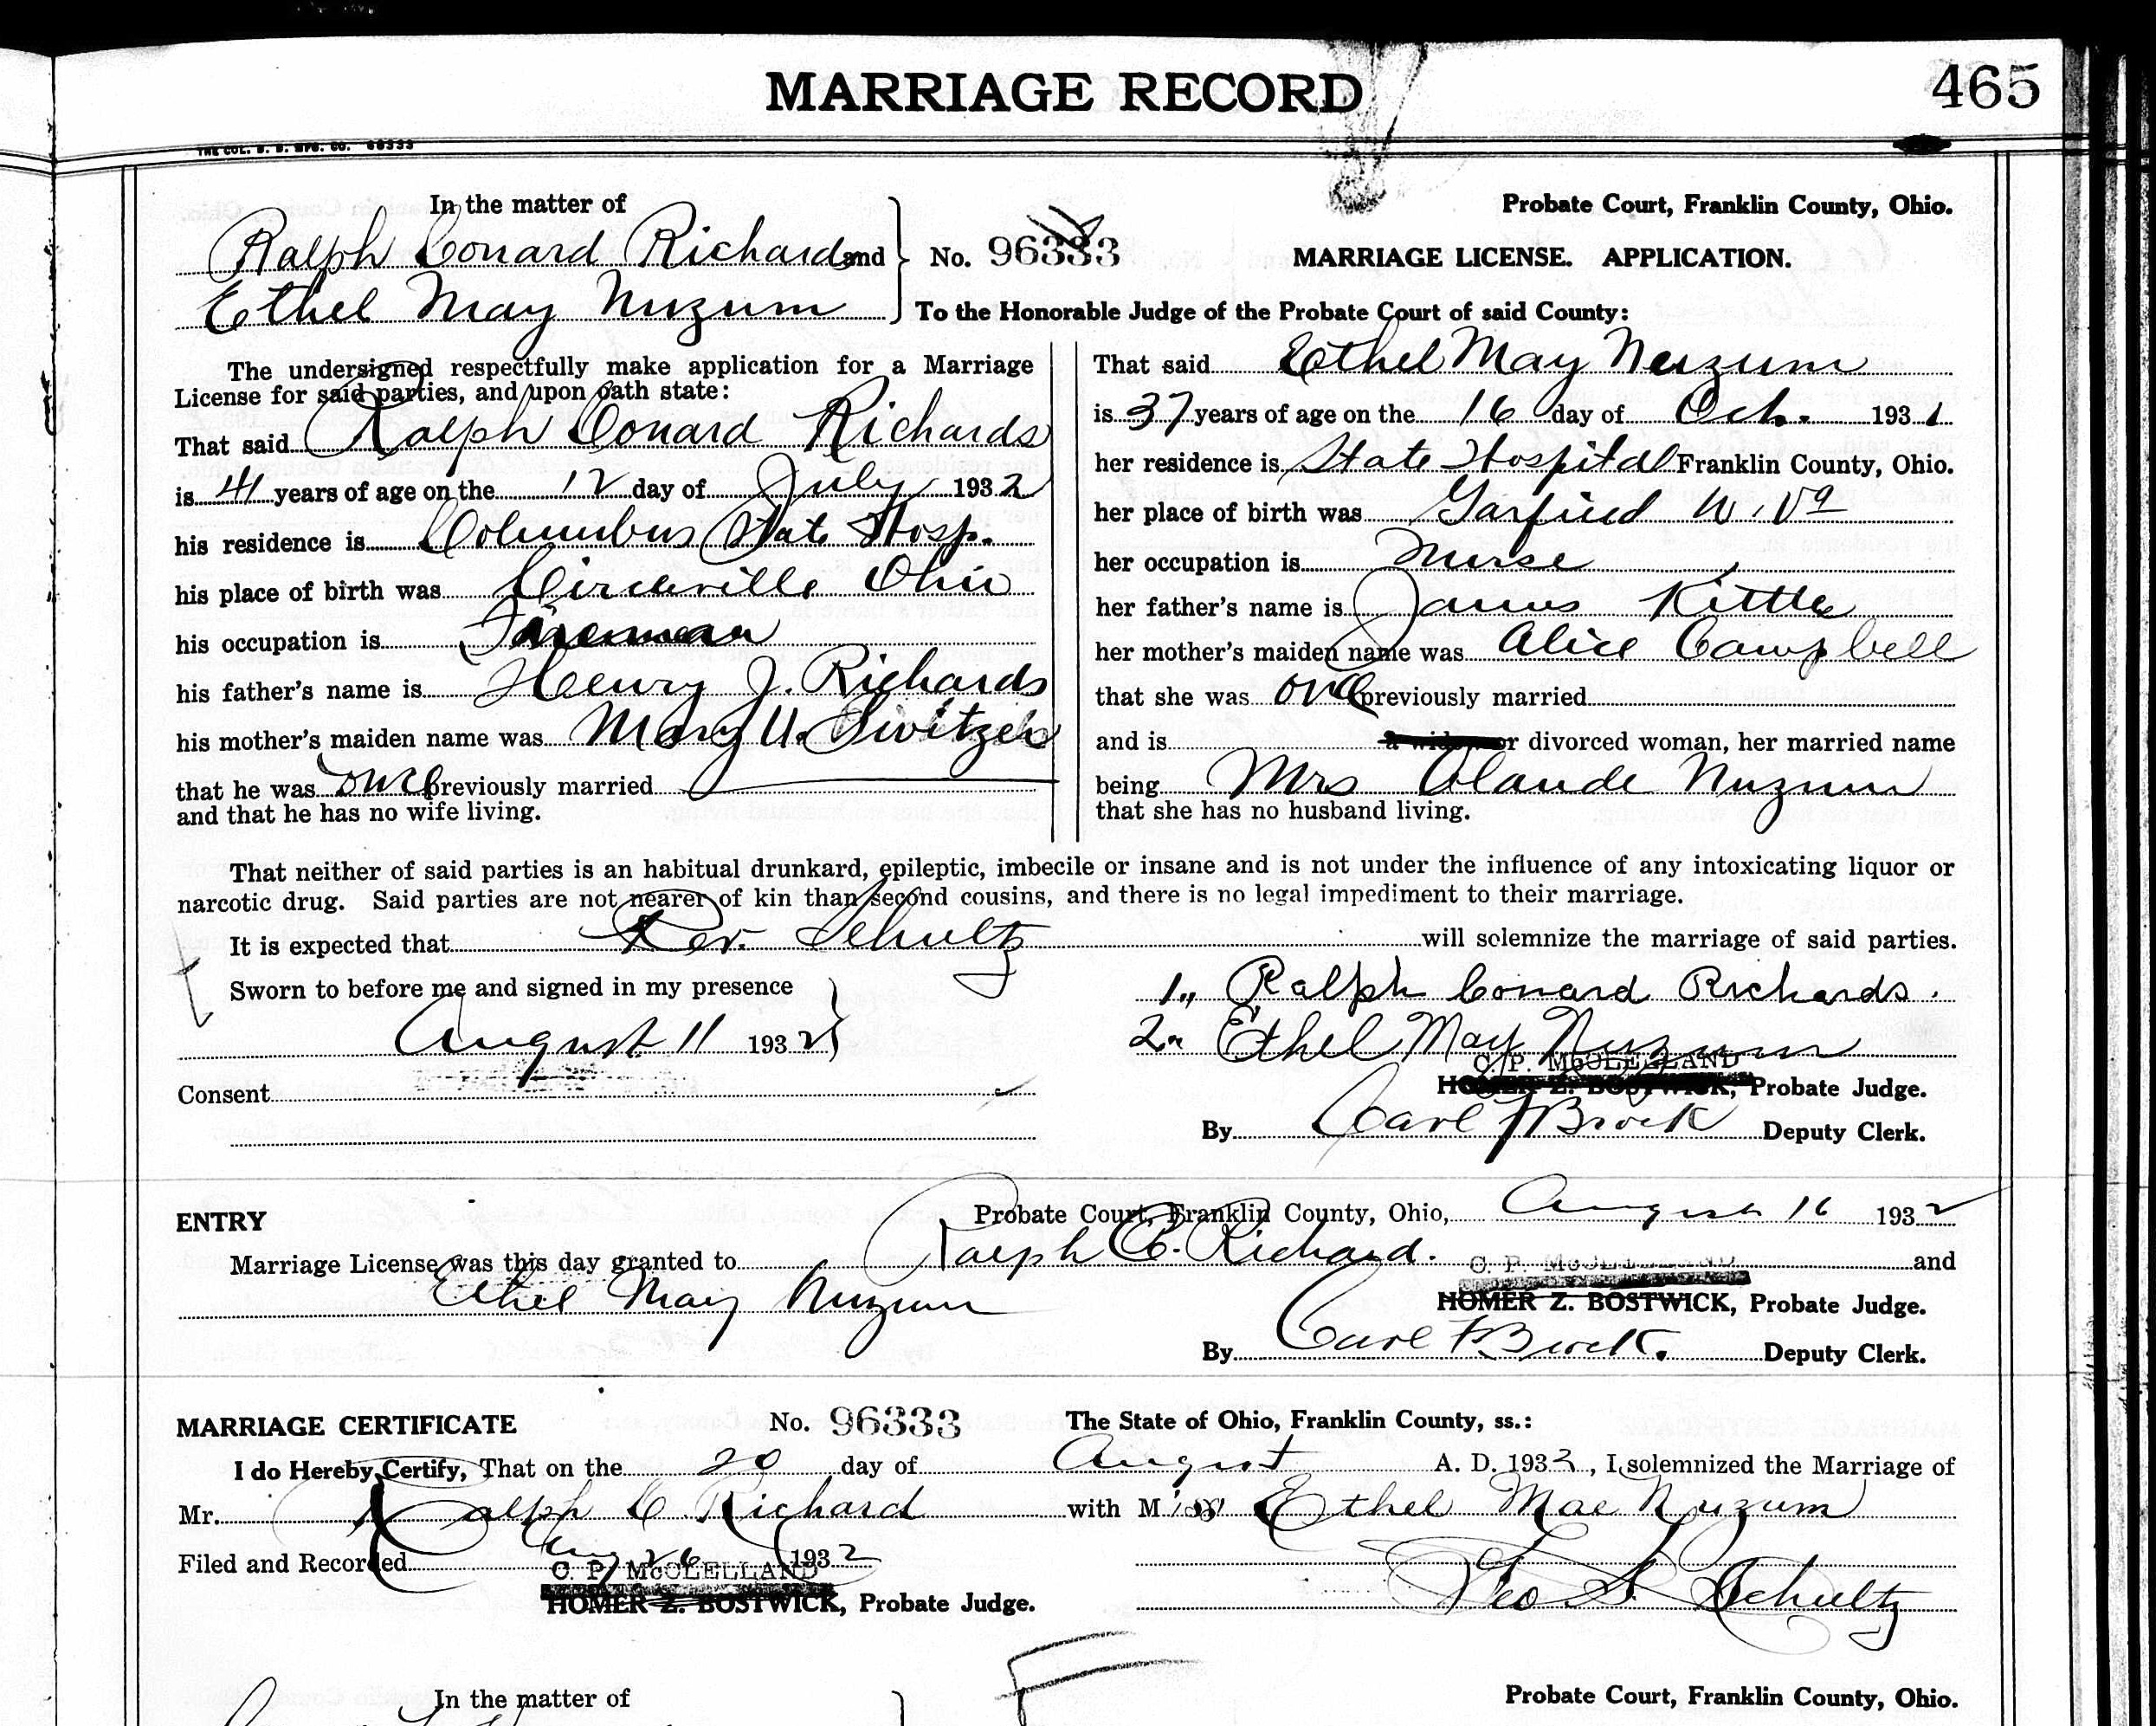 MARRIAGE RECORD 465
THE COL. B. B. MFG. CO. 69333
In the matter of
Probate Court, Franklin County, Ohio.
Ralph Conard Richards and
No. 96333
MARRIAGE LICENSE. APPLICATION.
Ethel May Nuzum
To the Honorable Judge of the Probate Court of said County:
The undersigned respectfully make application for a Marriage
License for said parties, and upon oath state:
That said Ralph Conard Richards
is 41 years of age on the 12 day of July 1932
his residence is Columbus State Hosp.
his place of birth was Circleville Ohio
his occupation is Fireman
his father's name is Henry J. Richards
his mother's maiden name was Mary U. Switzer
that he was once previously married
and that he has no wife living.
That said Ethel May Nuzum
is 37 years of age on the 16 day of Oct. 1931
her residence is State Hospital Franklin County, Ohio.
her place of birth was Garfield W. Va
her occupation is Nurse
her father's name is James Kittle
her mother's maiden name was Alice Campbell
that she was once previously married
and is a widow or divorced woman, her married name
being Mrs Claude Nuzum
that she has no husband living.
That neither of said parties is an habitual drunkard, epileptic, imbecile or insane and is not under the influence of any intoxicating liquor or
narcotic drug. Said parties are not nearer of kin than second cousins, and there is no legal impediment to their marriage.
It is expected that Rev. Schultz will solemnize the marriage of said parties.
Sworn to before me and signed in my presence
August 11 1932
Consent
1" Ralph Conard Richards.
2" Ethel May Nuzum
C. P. McCLELLAND
HOMER Z. BOSTWICK, Probate Judge.
By Carl F Brock Deputy Clerk.
ENTRY
Probate Court, Franklin County, Ohio, August 16 1932
Marriage License was this day granted to Ralph C. Richard. and
Ethel May Nuzum
C. P. McCLELLAND
HOMER Z. BOSTWICK, Probate Judge.
By Carl F Brock. Deputy Clerk.
MARRIAGE CERTIFICATE No. 96333 The State of Ohio, Franklin County, ss.:
I do Hereby Certify, That on the 20 day of August A. D. 1932, I solemnized the Marriage of
Mr. Ralph C Richard with Miss Ethel Mae Nuzum
Filed and Recorded Aug 26 1932
C. P. McCLELLAND
HOMER Z. BOSTWICK, Probate Judge.
Geo S. Schultz
In the matter of
Probate Court, Franklin County, Ohio.